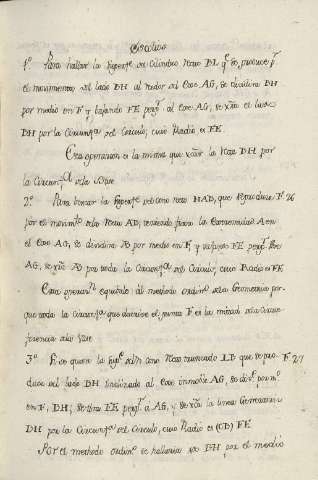 Escolios
1º. Para hallar la superfᵉ del Cilindro Recto DL qᵉ se produce pʳ
el movimiento del lado DH al rededor del Exe AG, se dividira DH
por medio en F y bajando FE perpʳ al Exe AG, se el lado
DH por la Circunfᵃ del Circulo, cuio Radio es FE
Esta operacion es la misma que la Recta DH por
la Circunfᵃ de la Base
2º. Para buscar la superfᵉ del cono recto HAD, que se produce F. 26
por el movimᵗᵒ de la Recta AD, teniendo fixa la extremidad A en
el Exe AG, se dividira AD por medio en F, y FE perpʳ
AG, se AD por toda la Circunfᵃ del Circulo, cuio Radio es FE
Esta operacⁿ equivale al methodo ordinᵒ de la Geometria por-
que toda la Circunfᵃ que describe el punto F es la mitad de la Circun-
ferencia de la Base
3º. Si se quiere la supfᵉ del Cono Recto truncado LD que se pro- F. 27
duce del lado DH inclinado al Exe immoble AG, se divᵃ por mᵒ
en F, DH; se tira FE perpʳ a AG, y se la linea Generatriz
DH por la Circunfᵃ del Circulo, cuio Radio es (CD) FE
Por el methodo ordinᵒ se hallaria DH por el medio